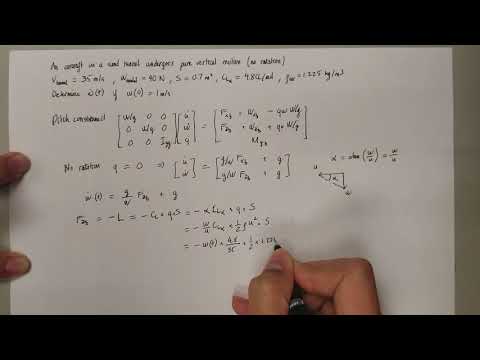 An aircraft in a wind tunnel undergoes pure vertical motion (no rotation)
V_tunnel = 35 m/s , W_model = 90 N , S = 0.7 m² , C_Lα = 4.8 /rad , ρ = 1.225 kg/m³
Determine ẇ(t) if w(0) = 1 m/s
Pitch constrained [W/g 0 0; 0 W/g 0; 0 0 I_yy] [u̇; ẇ; q̇] = [F_xb + W_xb - qw W/g; F_zb + W_zb + qu W/g; M_yb]
No rotation q = 0 ⇒ [u̇; ẇ] = [g/W F_xb + g; g/W F_zb + g]
α = atan (w/u) = w/u
u α w
ẇ(t) = g/W F_zb + g
F_zb = - L = - C_L * q * S = - α C_Lα * q * S
= - w/u C_Lα * 1/2 ρ u² * S
= - w(t) * 4.8/35 * 1/2 * 1.225